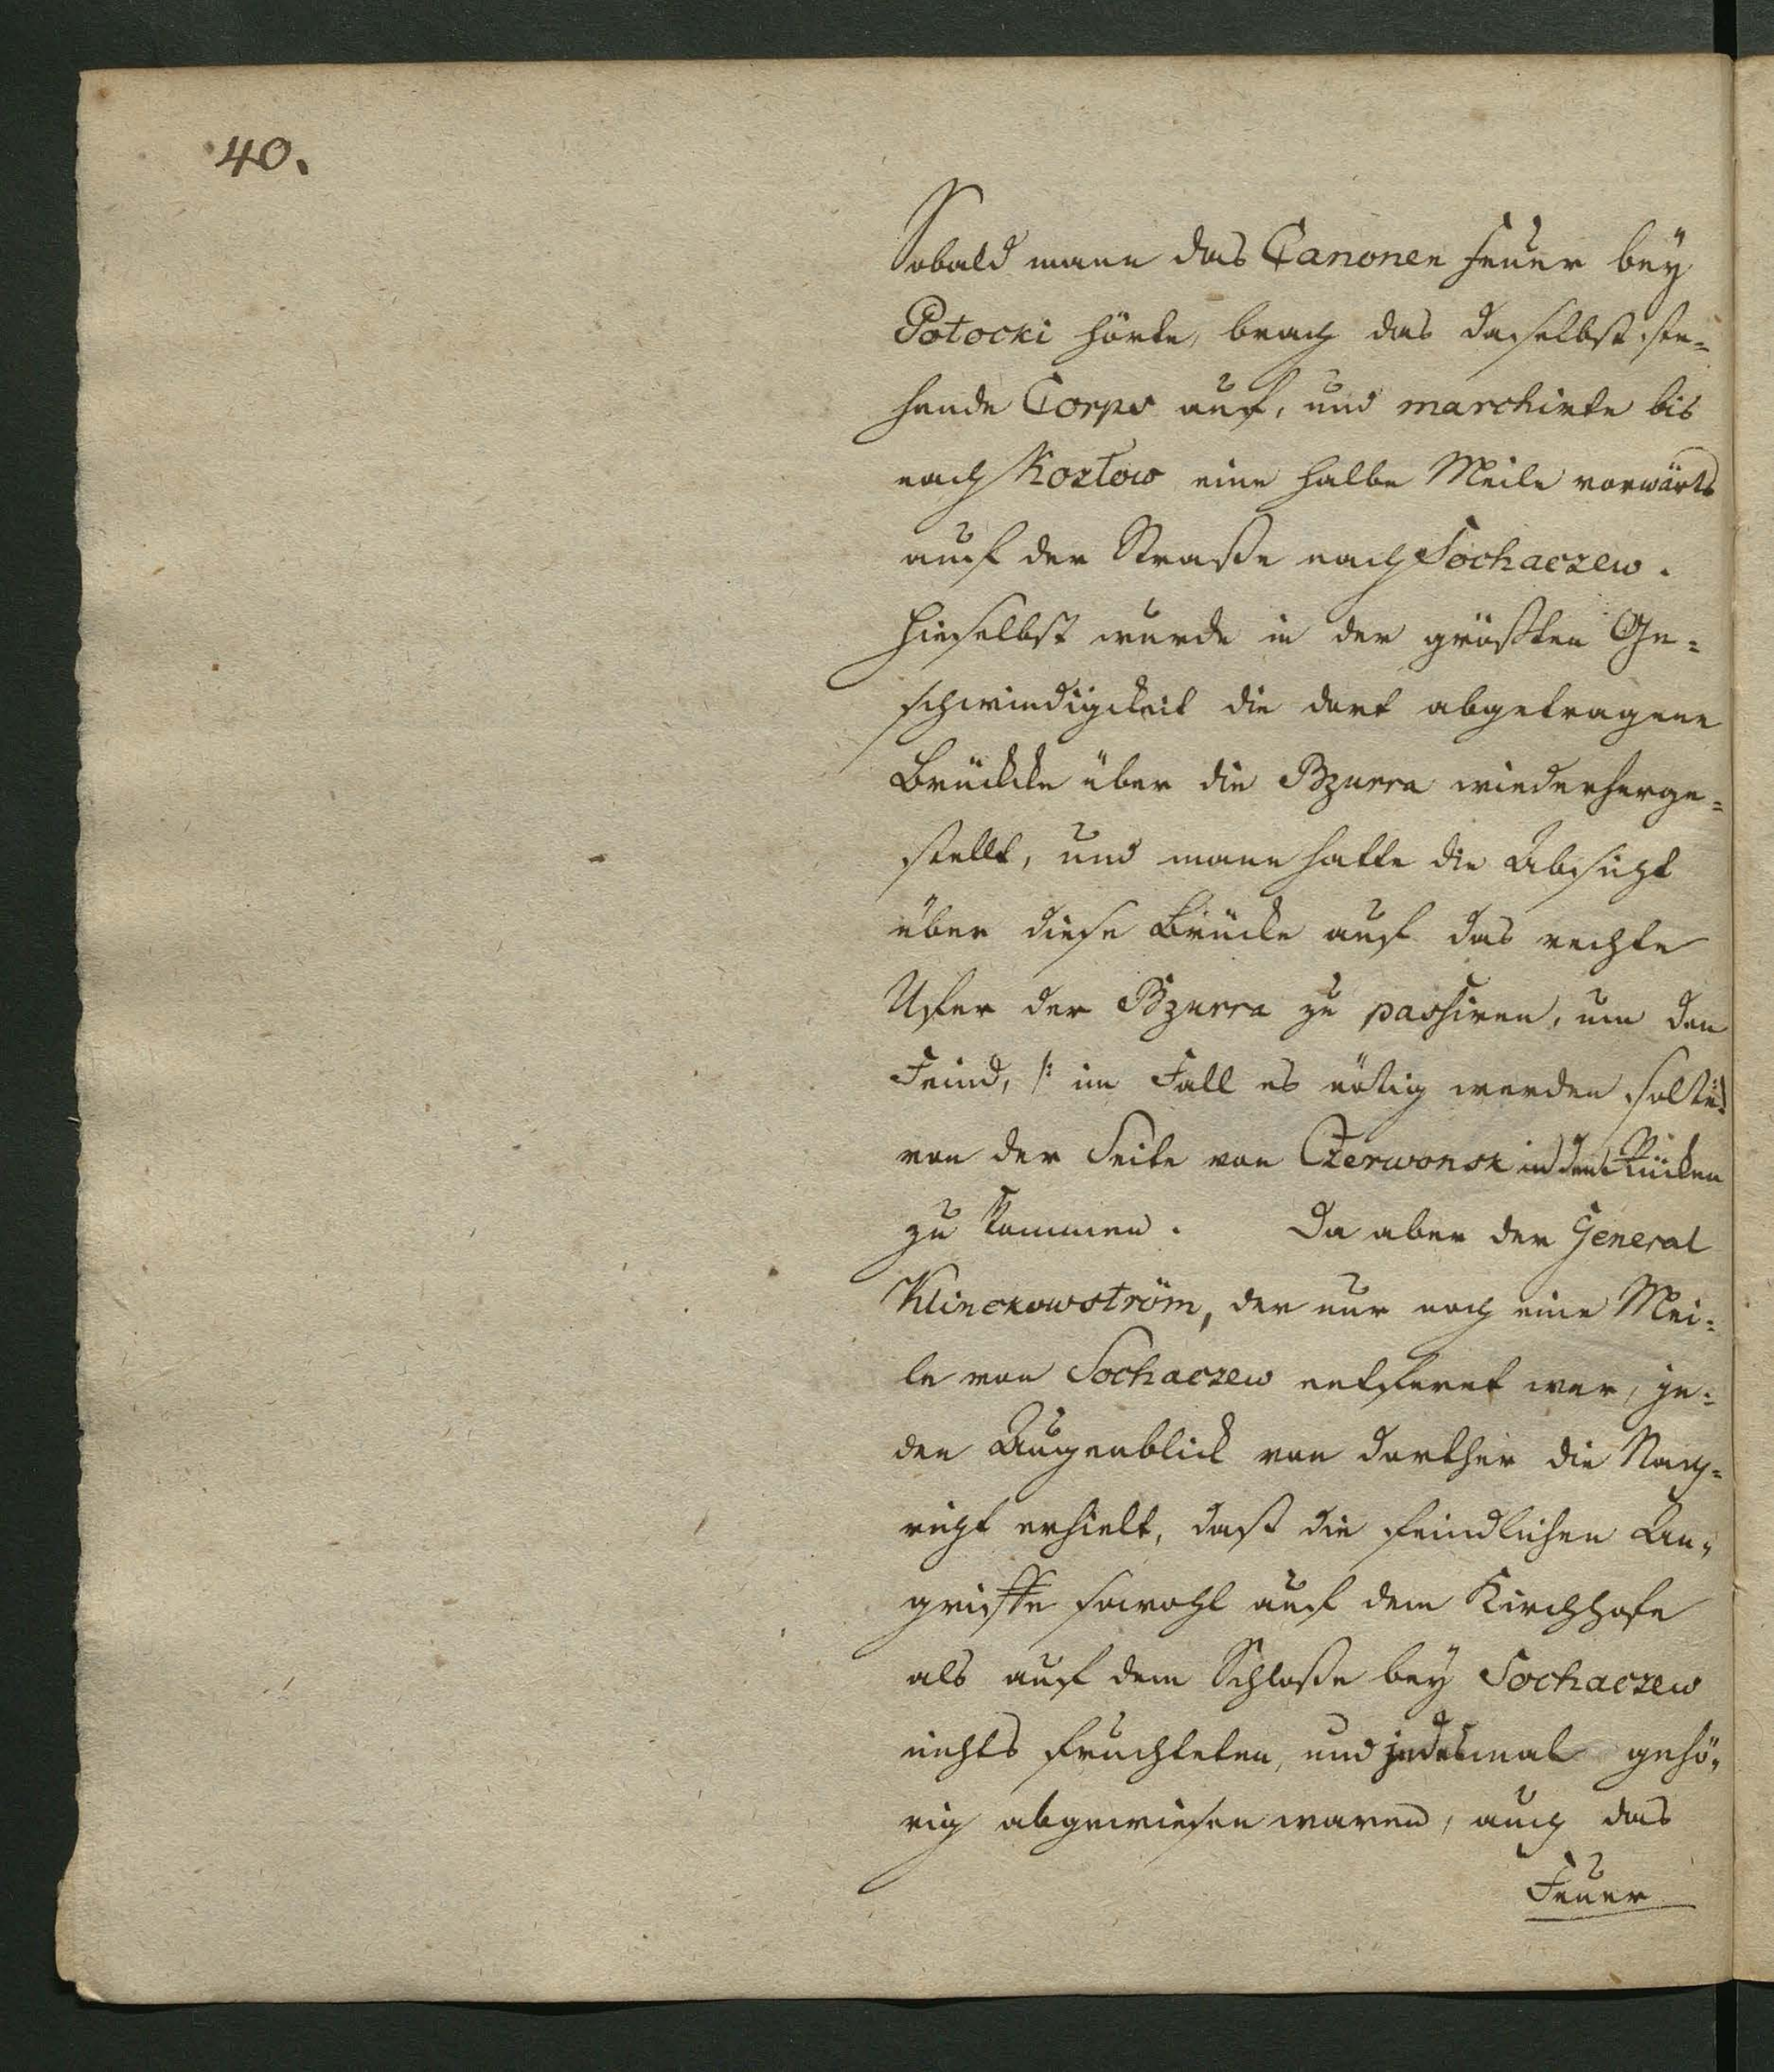 40.
Sobald mann das Canonen Feuer bey
Potocki hörte, brach das daselbst ste-
hende Corps auf, und marchirte bis
nach Kozlow eine halbe Meile vorwärts
auf der Straße nach Sochaczew.
Hieselbst wurde in der größten Ge-
schwindigkeit die dort abgetragene
Brückke über die Bzurra wiederherge-
stellt, und mann hatte die Absicht
über diese Brücke auf das rechte
Ufer der Bzurra zu passiren, um den
Feind, /: im Fall es nötig werden solte :/
von der Seite von Czerwonsk in den Rücken
zu kommen. Da aber der General
Klinckowström, der nur noch eine Mei-
le von Sochaczew entfernt war, je-
den Augenblick von dorther die Nach-
richt erhielt, daß die feindlichen An-
griffe sowohl auf dem Kirchhofe
als auf dem Schloße bey Sochaczew
nichts fruchteten, und jedesmal gehö-
rig abgewiesen waren, auch das
Feuer